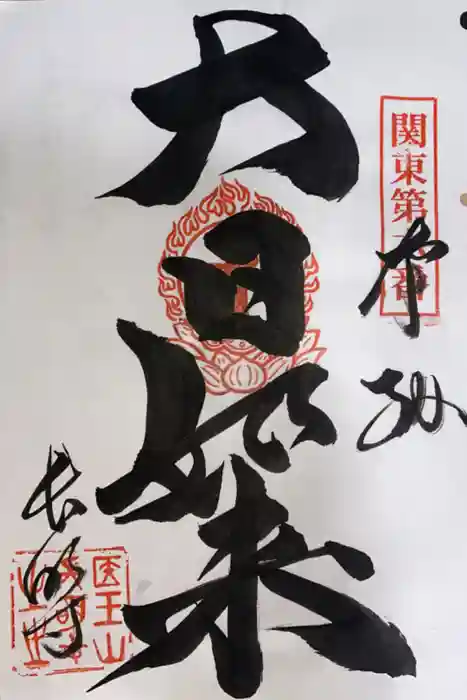 関東第六番
奉拝
大日如来
長明寺
医王山